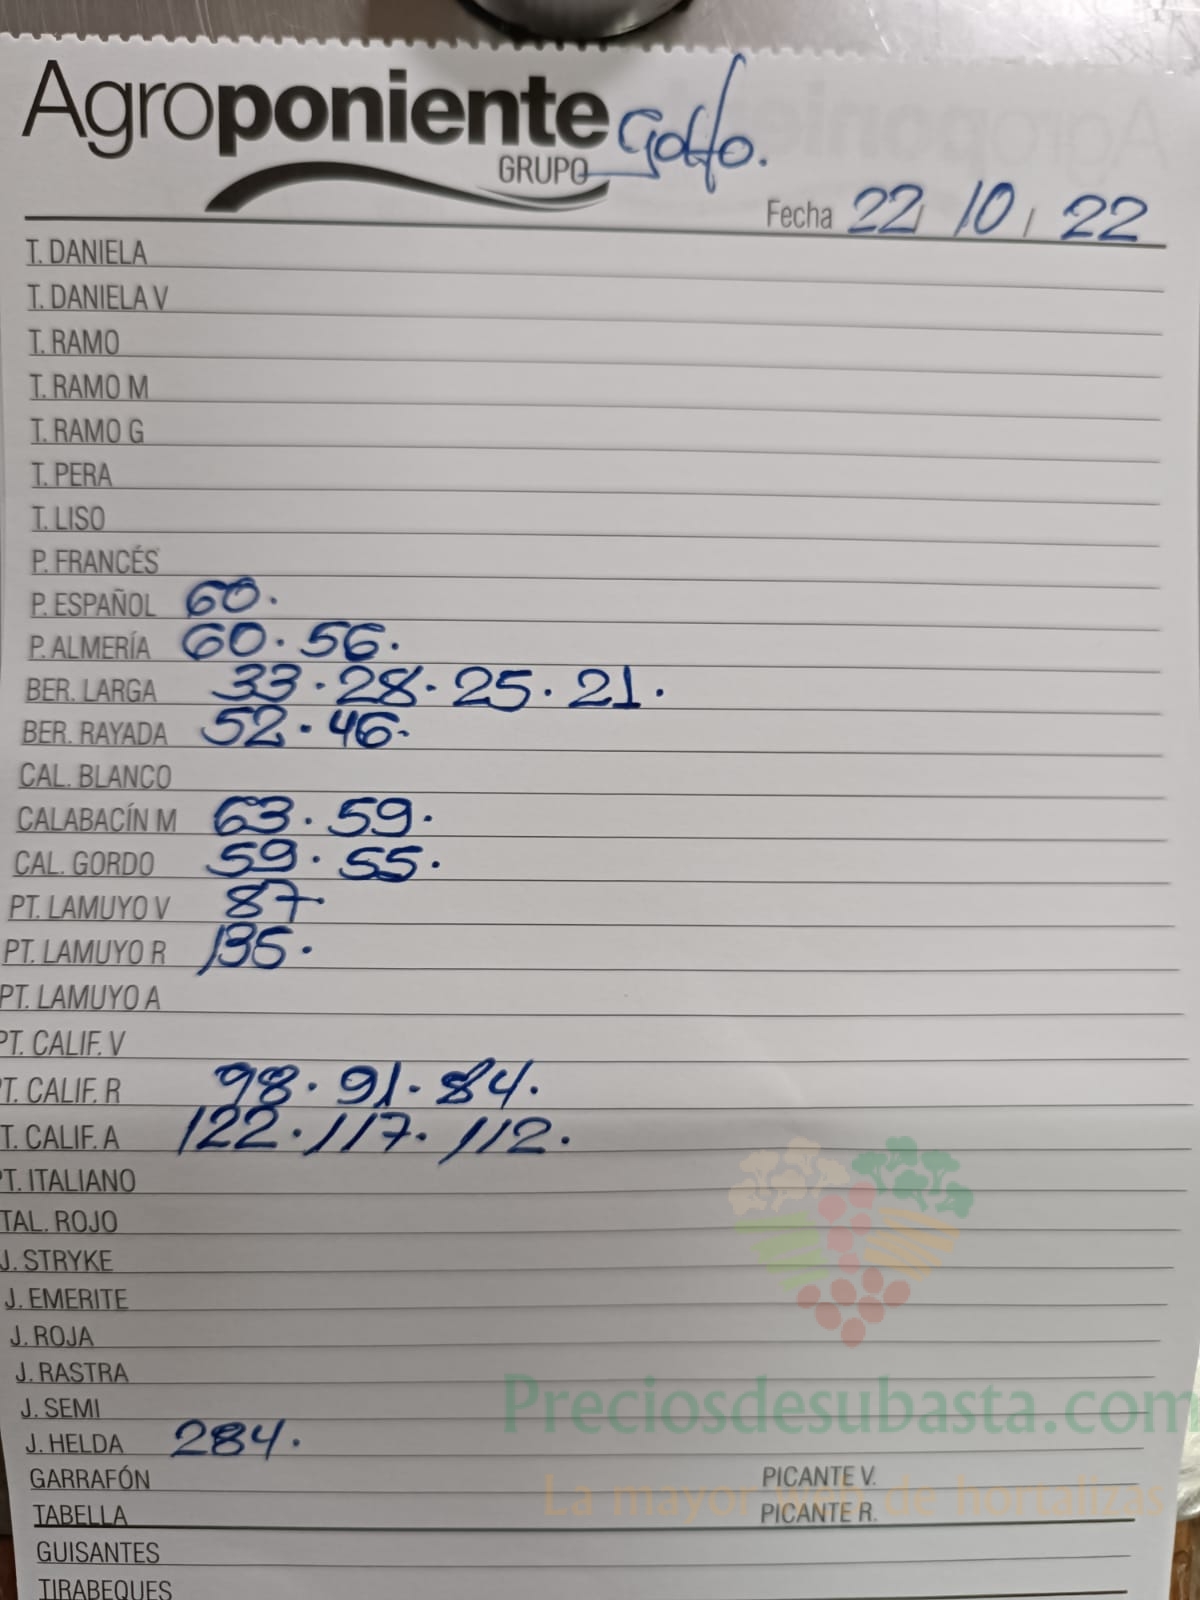 Agroponiente Golfo.
GRUPO
Fecha 22 / 10 / 22
T. DANIELA
T. DANIELA V
T. RAMO
T. RAMO M
T. RAMO G
T. PERA
T. LISO
P. FRANCÉS
P. ESPAÑOL 60.
P. ALMERÍA 60. 56.
BER. LARGA 33. 28. 25. 21.
BER. RAYADA 52. 46.
CAL. BLANCO
CALABACÍN M 63. 59.
CAL. GORDO 59. 55.
PT. LAMUYO V 87.
PT. LAMUYO R 135.
PT. LAMUYO A
PT. CALIF. V
T. CALIF. R 98. 91. 84.
T. CALIF. A 122. 117. 112.
PT. ITALIANO
TAL. ROJO
J. STRYKE
J. EMERITE
J. ROJA
J. RASTRA
J. SEMI
Preciosdesubasta.com
J. HELDA 284.
GARRAFÓN PICANTE V.
La mayor web de hortalizas
TABELLA PICANTE R.
GUISANTES
TIRABEQUES